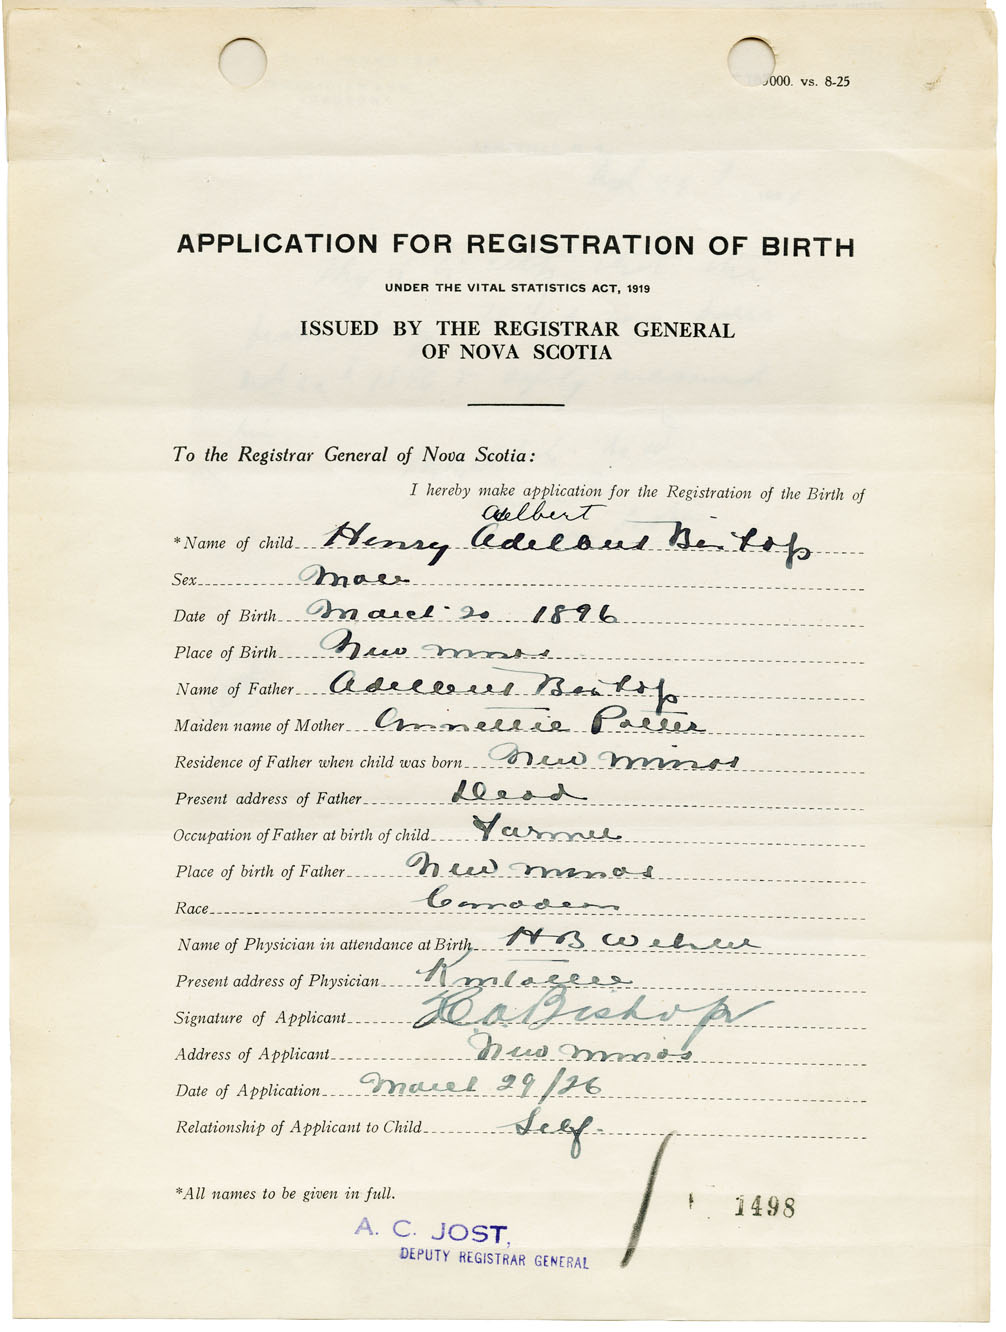 000. vs. 8-25
APPLICATION FOR REGISTRATION OF BIRTH
UNDER THE VITAL STATISTICS ACT, 1919
ISSUED BY THE REGISTRAR GENERAL
OF NOVA SCOTIA
To the Registrar General of Nova Scotia:
I hereby make application for the Registration of the Birth of
Adelbert
*Name of child Henry Adelbert Bishop
Sex Male
Date of Birth March 20 1896
Place of Birth New Minas
Name of Father Adelbert Bishop
Maiden name of Mother Annettie Potter
Residence of Father when child was born New Minas
Present address of Father Dead
Occupation of Father at birth of child Farmer
Place of birth of Father New Minas
Race Canadian
Name of Physician in attendance at Birth H B Webster
Present address of Physician Kentville
Signature of Applicant H A Bishop
Address of Applicant New Minas
Date of Application March 29/26
Relationship of Applicant to Child Self.
*All names to be given in full.
1498
A. C. JOST,
DEPUTY REGISTRAR GENERAL